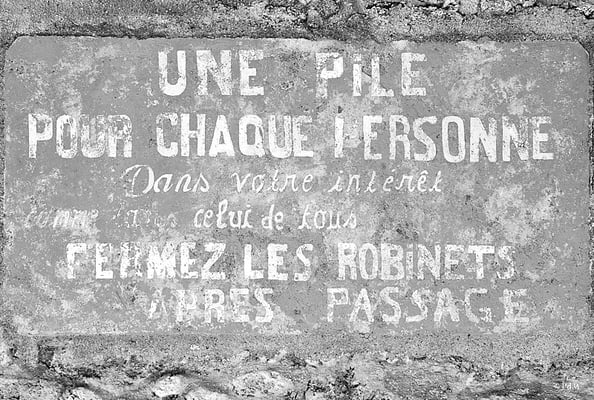 UNE PiLE
POUR CHAQUE PERSONNE
Dans votre intérêt
comme dans celui de tous
FERMEZ LES ROBiNETS
APRES PASSAGE